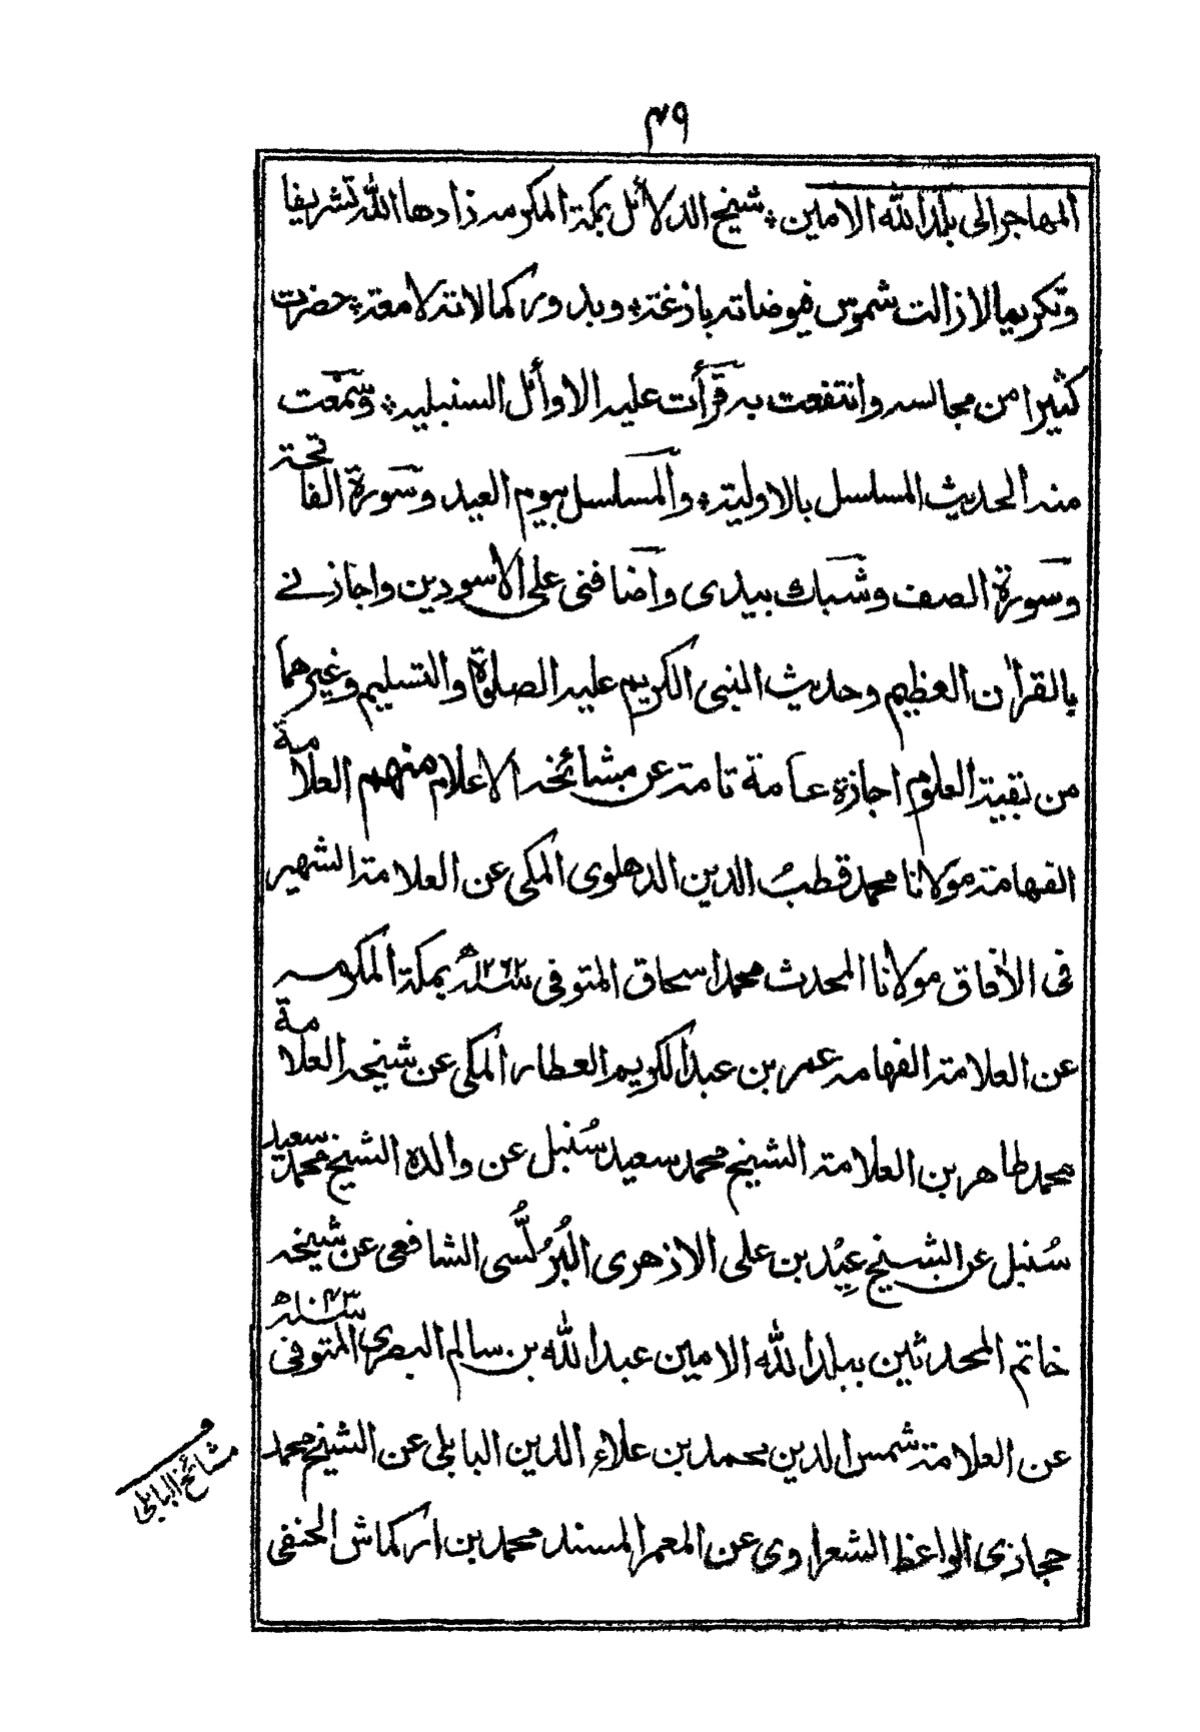 ٤٩
المهاجر الى بلد الله الامين ٭ شيخ الدلائل بمكة المكرمه زادها الله تشريفا
وتكريما لا زالت شموس فيوضاته بازغة ٭ وبدور كمالاته لامعة ٭ حضرت
كثيرا من مجالسه وانتفعت به قرأت عليه الاوائل السنبليه ٭ وسمعت
منه الحديث المسلسل بالاولية ٭ والمسلسل بيوم العيد وسورة الفاتحة
وسورة الصف وشبك بيدى واضافنى على الاسودين واجازنے
بالقرأن العظيم وحديث النبى الكريم عليه الصلوة والتسليم وغيرهما
من بقية العلوم اجازة عامة تامة عن مشائخه الاعلام منهم العلامة
الفهامة مولانا محمد قطب الدين الدهلوى المكى عن العلامة الشهير
فى الأفاق مولانا المحدث محمد اسحاق المتوفى سنة ١٢٦٢ھ بمكة المكرمه
عن العلامة الفهامه عمر بن عبد الكريم العطار المكى عن شيخه العلامة
محمد طاهر بن العلامة الشيخ محمد سعيد سُنبل عن والده الشيخ محمد سعيد
سُنبل عن الشيخ عِيْد بن على الازهرى البُرُلُّسى الشافعى عن شيخه
خاتم المحدثين ببلد الله الامين عبد الله بن سالم البصرى المتوفى سنة ١٠٤٣ھ
عن العلامة شمس الدين محمد بن علاء الدين البابلى عن الشيخ محمد
حجازى الواعظ الشعراوى عن المعمر المسند محمد بن اركماش الحنفى
مشائخ البابلى